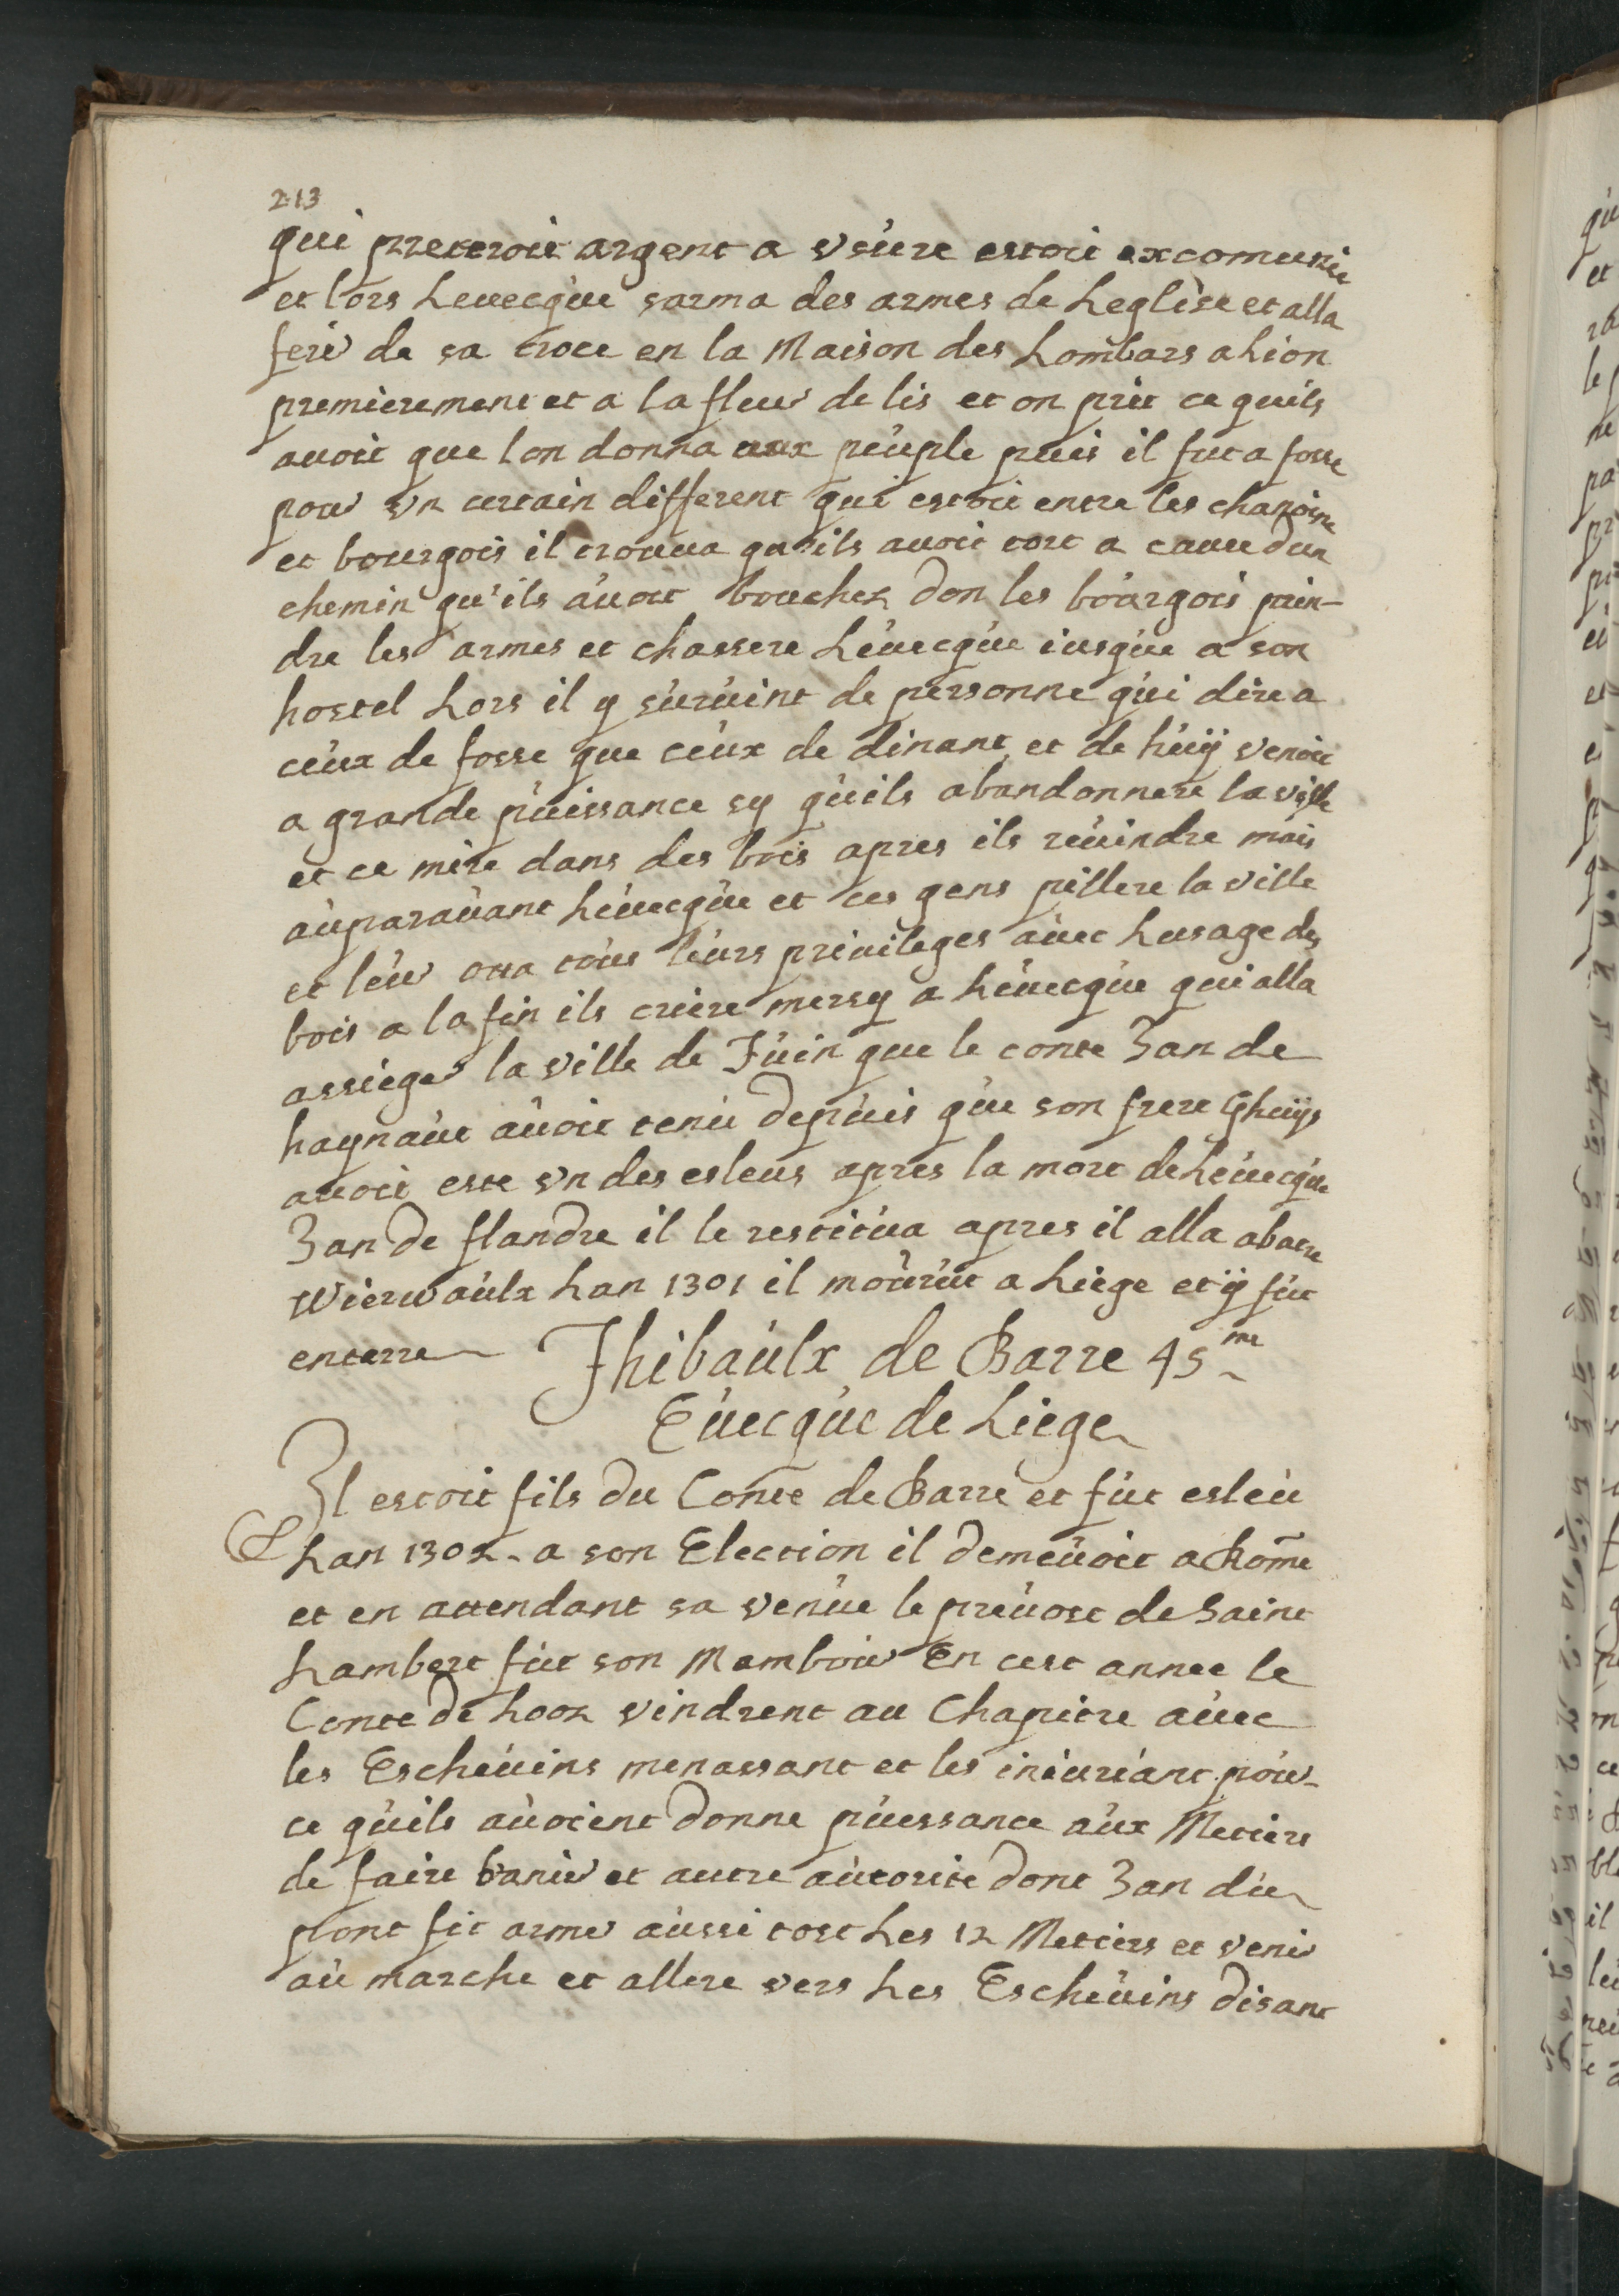 213
qui preteroit argent a vsure estoit excomunie
et lors Leuecque sarma des armes de Leglise et alla
ferir de sa croce en la Maison des Lombars a Lion
premierement et a la fleur de lis et on prit ce quils
auoit que lon donna aux peuple puis il fut a fosse
pour vn certain different qui estoit entre les chanoine
et bourgois il trouua qu'ils auoit tort a cause dun
chemin qu'ils auoit bouchez don les bourgois prin-
dre les armes et chassere Leuecque iusque a son
hostel Lors il y suruint de personne qui dire a
ceux de fosse que ceux de dinant et de huÿ venoit
a grande puissance sy quils abandonnere la ville
et ce mire dans des bois apres ils reuindre mais
auparauant Leuecque et ces gens pillere la ville
et leur otta tous leurs priuileges auec Lusage des
bois a la fin ils criere mersy a Leuecque qui alla
assieger la ville de Tuin que le conte Jan de
haynaut auoit tenu depuis que son frere Ghuÿs
auoit este vn des esleus apres la mort de Leuecque
Jan de flandre il le restitua apres il alla abatre
Wierwaulx Lan 1301 il mourut a Liege et ÿ fut
enterre Thibaulx de Barre 45me
Euecque de Liege
Il estoit fils du Conte de Barre et fut esleu
Lan 1302 a son Election il demeuoit a Rome
et en attendant sa venue le preuost de Saint
Lambert fut son Mambour En cest annee le
Conte de Looz vindrent au Chapitre auec
les Escheuins menassant et les iniuriant pour
ce quils auoient donne puessance aux Metiers
de faire banir et autre autorite dont Jan du
pont fit armer aussi tost Les 12 Metiers et venir
au marche et allere vers Les Escheuins disant